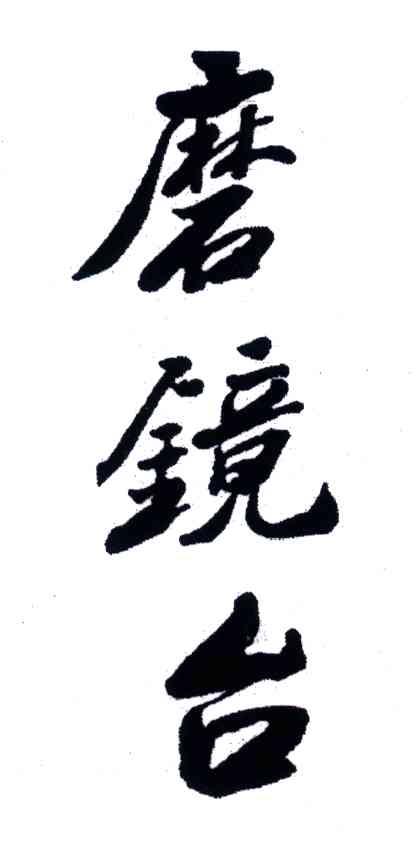 磨鏡台